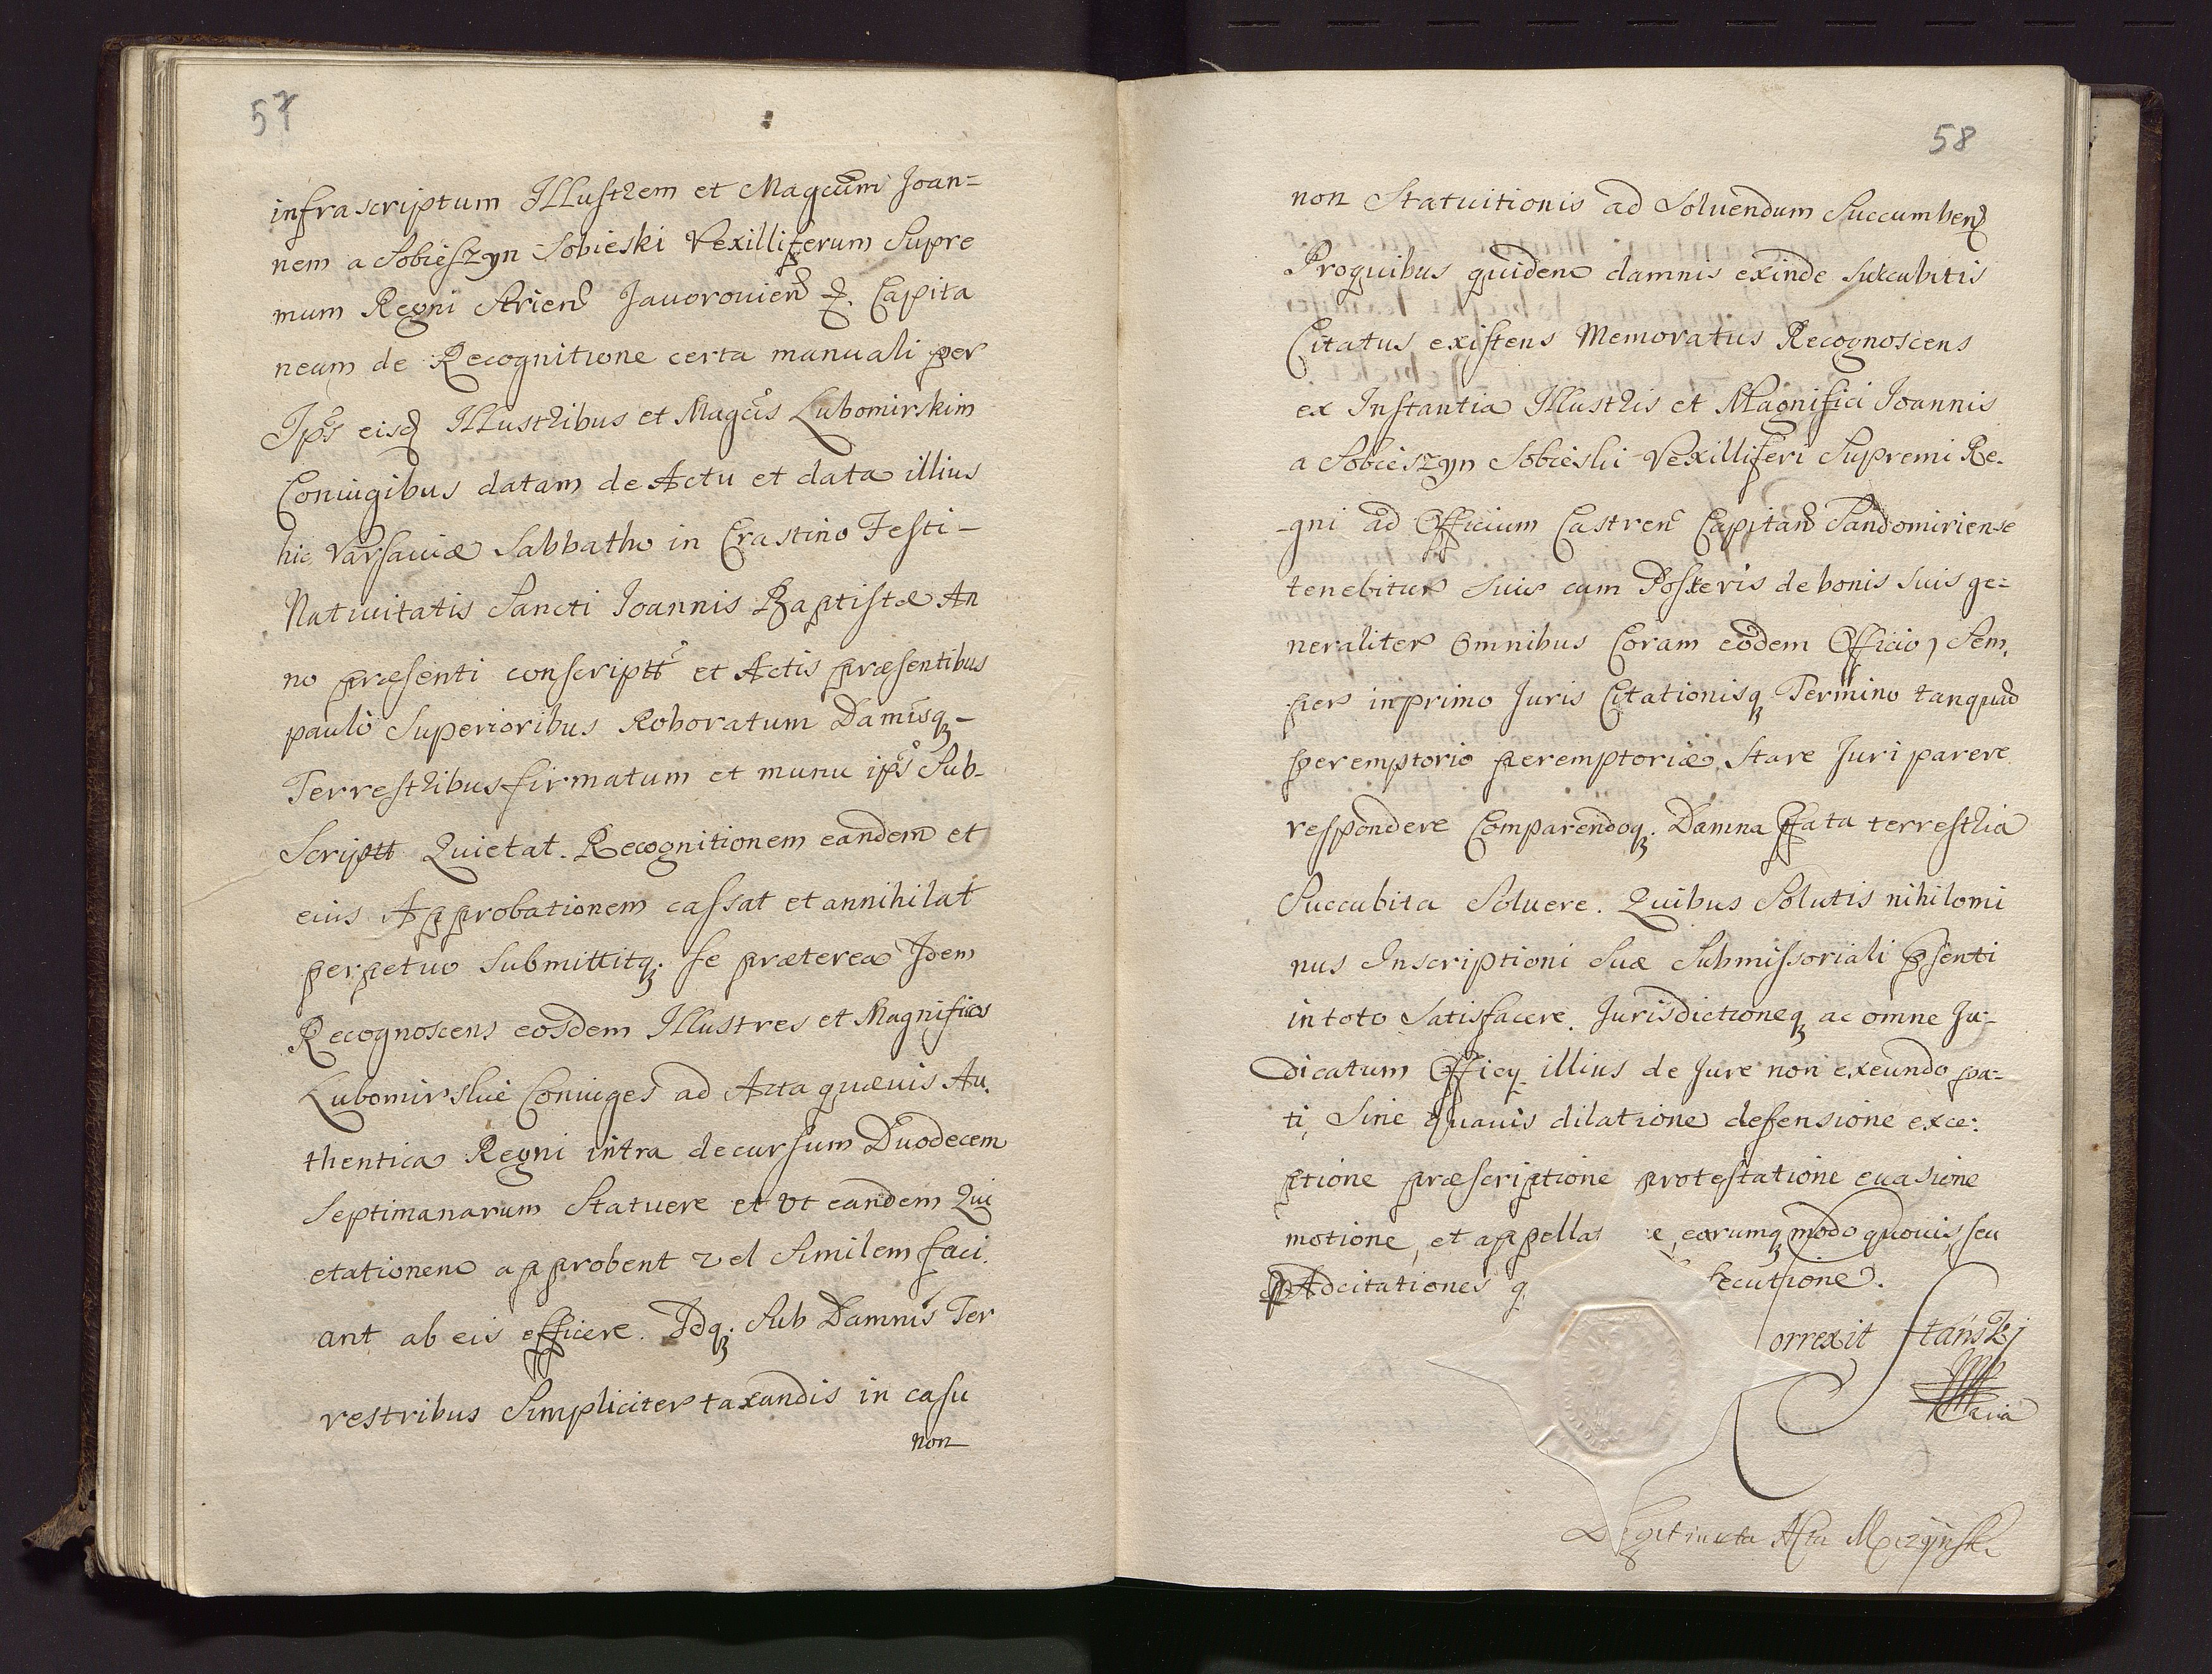 57
infrascriptum Illustrem et Magcum Joan=
nem a Sobieszyn Sobieski Vexilliferum Supre
mum Regni Strien Javorovien &. Capita
neum de Recognitione certa manuali per
Ips eisd Illustribus et Magcis Lubomirskim
Coniugibus datam de Actu et data illius
hic Varsauiæ Sabbatho in Crastino Festi-
Natiuitatis Sancti Ioannis Baptistæ An
no præsenti conscriptt et Actis præsentibus
paulò Superioribus Roboratum Damisq-
Terrestribus firmatum et munu ips Sub-
Scriptt Quietat. Recognitionem eandem et
eius Approbationem cassat et annihilat
perpetuo Submittitq. se præterea Idem
Recognoscens eosdem Illustres et Magnificos
Lubomirskie Coniuges ad Acta quæuis Au.
thentica Regni intra decursum Duodecem
Septimanarum Statuere et vt eandem Qui
etationem approbent vel Similem faci.
ant ab eis efficere. Idq. Sub Damnis Ter
restribus Simpliciter taxandis in casu
non
58
non Statuitionis ad Soluendum Succumben
Proquibus quidem damnis exinde Succubitis
Citatus existens Memoratus Recognoscens
ex Instantia Illustris et Magnifici Ioannis
a Sobieszyn Sobieski Vexilliferi Supremi Re.
-gni ad Officium Castren Capitan Sandomiriense
tenebitur Suis cum Posteris de bonis Suis ge=
neraliter Omnibus Coram eodem Officio, Sem,
per in primo Juris Citationisq Termino tanquam
peremptorio peremptoriæ Stare Juri parere
respondere Comparendoq. Damna pfata terrestria
Succubita Soluere. Quibus Solutis nihilomi
nus Inscriptioni Suæ Submissoriali psenti
in toto Satisfacere. Jurisdictioneq ac omne Ju-
dicatum Officy illius de Jure non exeundo pa=
ti, Sine quauis dilatione defensione exce:
ptione præscriptione protestatione euasione
motione, et appellat e, earumq modo quouis, seu
Adcitationes q ecutione.
orrexit
iuxta Acta